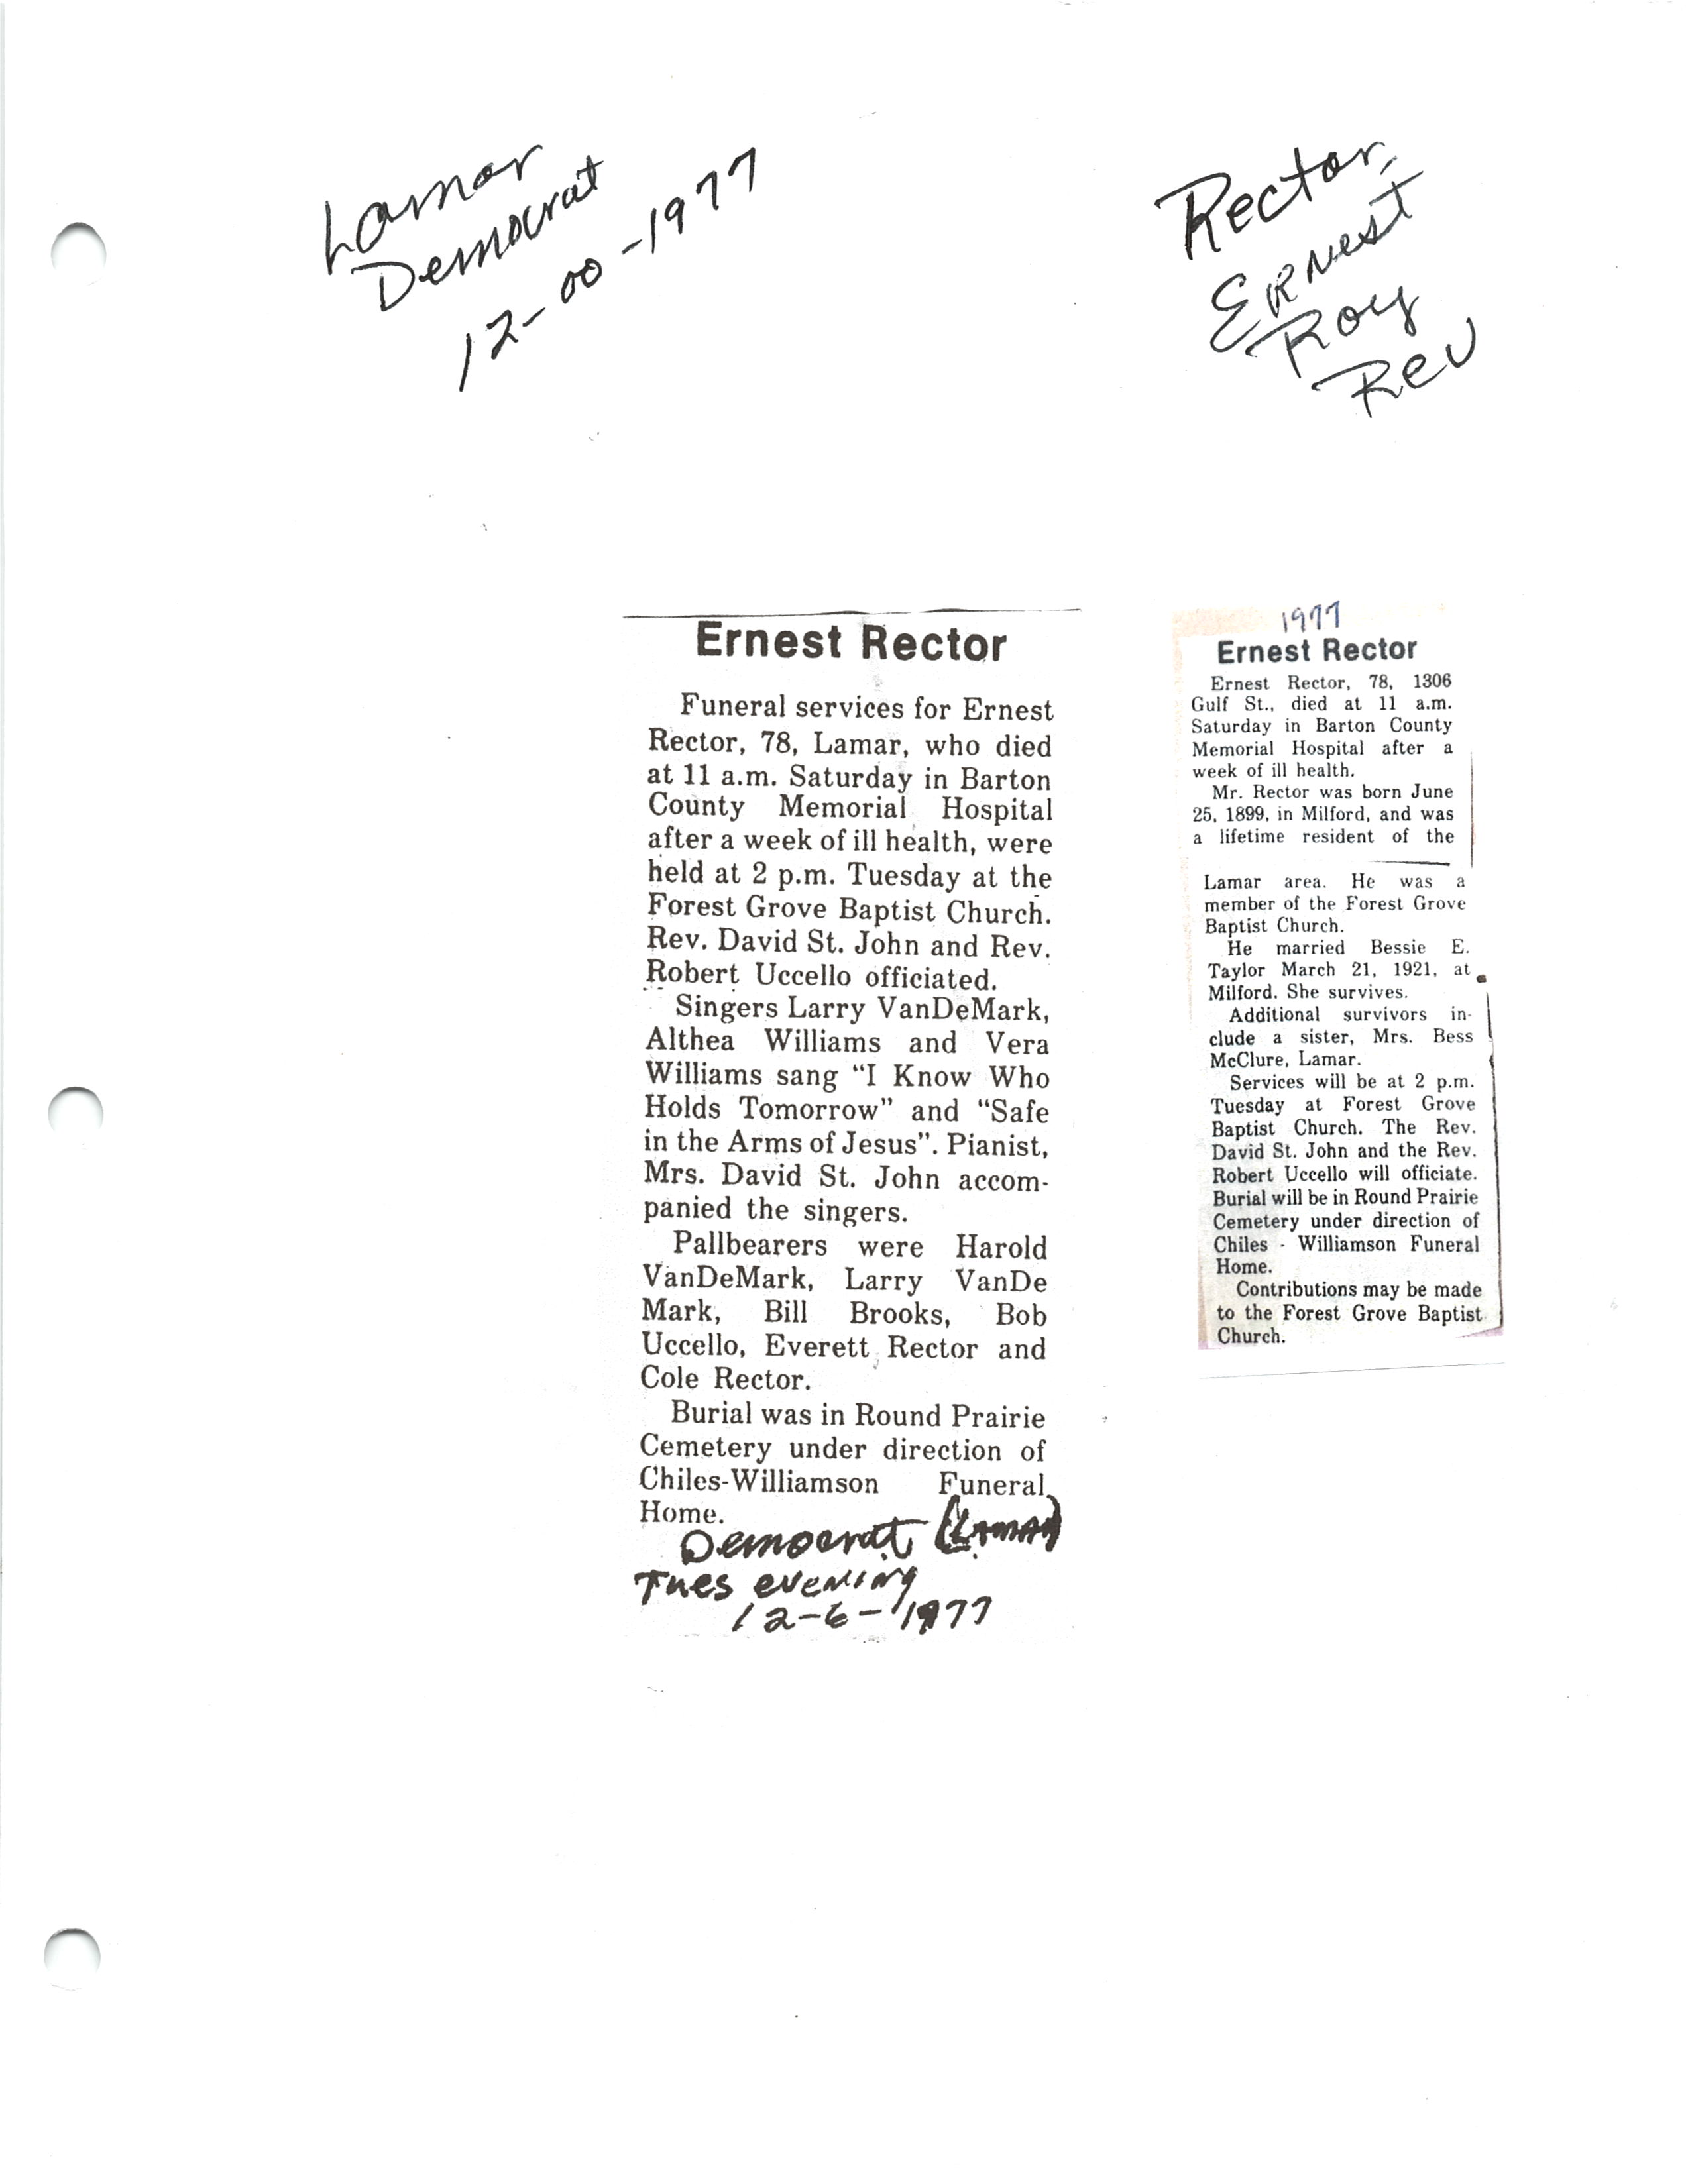 Lamar
Democrat
12-00-1977
Rector,
Ernest
Roy
Rev
Ernest Rector
Funeral services for Ernest
Rector, 78, Lamar, who died
at 11 a.m. Saturday in Barton
County Memorial Hospital
after a week of ill health, were
held at 2 p.m. Tuesday at the
Forest Grove Baptist Church.
Rev. David St. John and Rev.
Robert Uccello officiated.
Singers Larry VanDeMark,
Althea Williams and Vera
Williams sang “I Know Who
Holds Tomorrow” and “Safe
in the Arms of Jesus”. Pianist,
Mrs. David St. John accom-
panied the singers.
Pallbearers were Harold
VanDeMark, Larry VanDe
Mark, Bill Brooks, Bob
Uccello, Everett Rector and
Cole Rector.
Burial was in Round Prairie
Cemetery under direction of
Chiles-Williamson Funeral
Home.
Democrat (Lamar)
Tues evening
12-6-1977
1977
Ernest Rector
Ernest Rector, 78, 1306
Gulf St., died at 11 a.m.
Saturday in Barton County
Memorial Hospital after a
week of ill health.
Mr. Rector was born June
25, 1899, in Milford, and was
a lifetime resident of the
Lamar area. He was a
member of the Forest Grove
Baptist Church.
He married Bessie E.
Taylor March 21, 1921, at
Milford. She survives.
Additional survivors in-
clude a sister, Mrs. Bess
McClure, Lamar.
Services will be at 2 p.m.
Tuesday at Forest Grove
Baptist Church. The Rev.
David St. John and the Rev.
Robert Uccello will officiate.
Burial will be in Round Prairie
Cemetery under direction of
Chiles - Williamson Funeral
Home.
Contributions may be made
to the Forest Grove Baptist
Church.